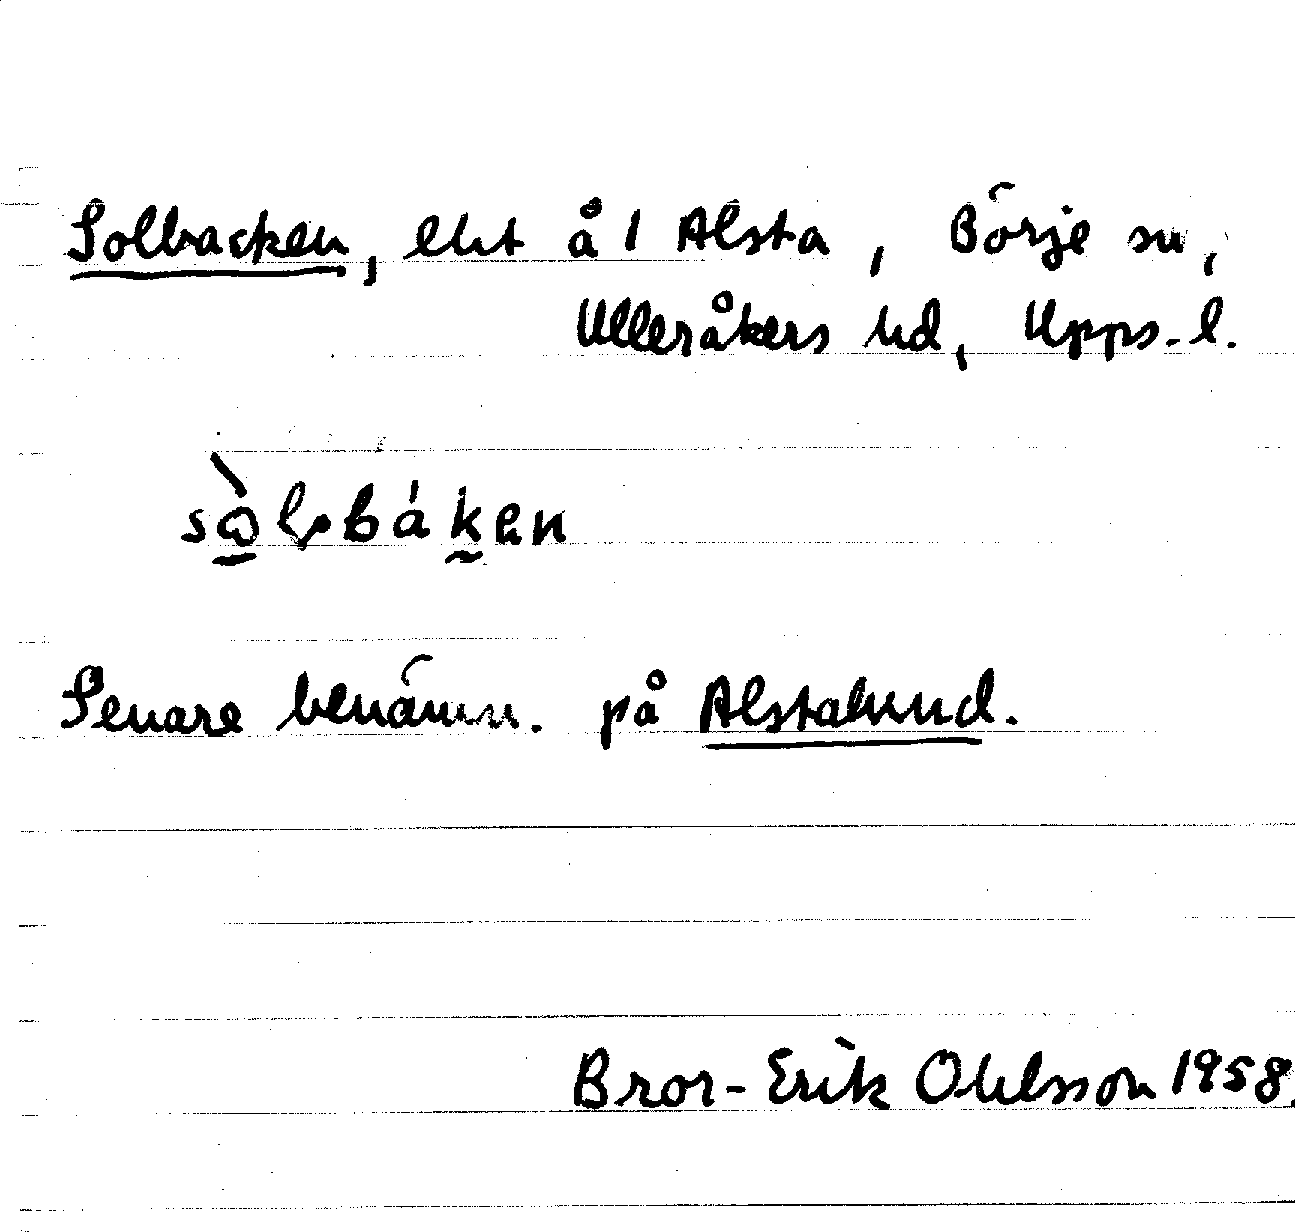 Solbacken, eht å 1 Alsta, Börje sn,
Ulleråkers hd, Upps. l.
Senare benämn. på Alstalund.
Bror-Erik Ohlsson 1958.